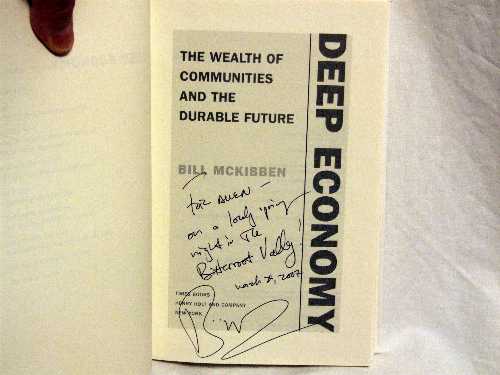 THE WEALTH OF
COMMUNITIES
AND THE
DURABLE FUTURE
DEEP ECONOMY
BILL MCKIBBEN
FOR ALLEN —
on a lovely spring
night in The
Bitterroot Valley!
March 2007
TIMES BOOKS
HENRY HOLT AND COMPANY
NEW YORK